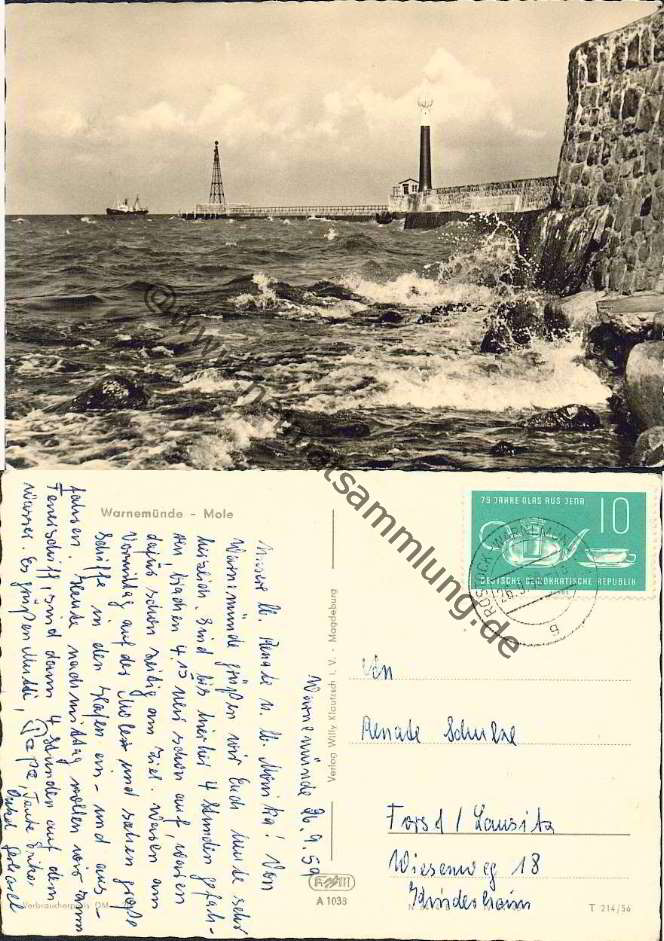 © www.heimatsammlung.de
Warnemünde - Mole
75 JAHRE GLAS AUS JENA 10
DEUTSCHE DEMOKRATISCHE REPUBLIK
ROSTOCK-WARNEMÜNDE
b
Warnemünde 26.9.59
Unsere lb. Renate u. lb. Monika! Von
Warnemünde grüßen wir Euch heute sehr
herzlich. Sind bis hierher 4 Stunden gefah-
ren, brachen 4.15 Uhr schon auf, waren
dafür schon zeitig am Ziel. Waren am
Vormittag auf der Mole und sahen große
Schiffe in den Hafen ein- und aus-
fahren. Heute nachmittag wollen wir zum
Feuerschiff, sind dann 4 Stunden auf dem
Wasser. Es grüßen Mutti, Papa, Tante Erika
Onkel
An
Renate Schulze
Forst / Lausitz
Wiesenweg 18
Kinderheim
Verlag Willy Klautzsch i. V. - Magdeburg
A 1038
Verbraucherpreis DM
T 214/56